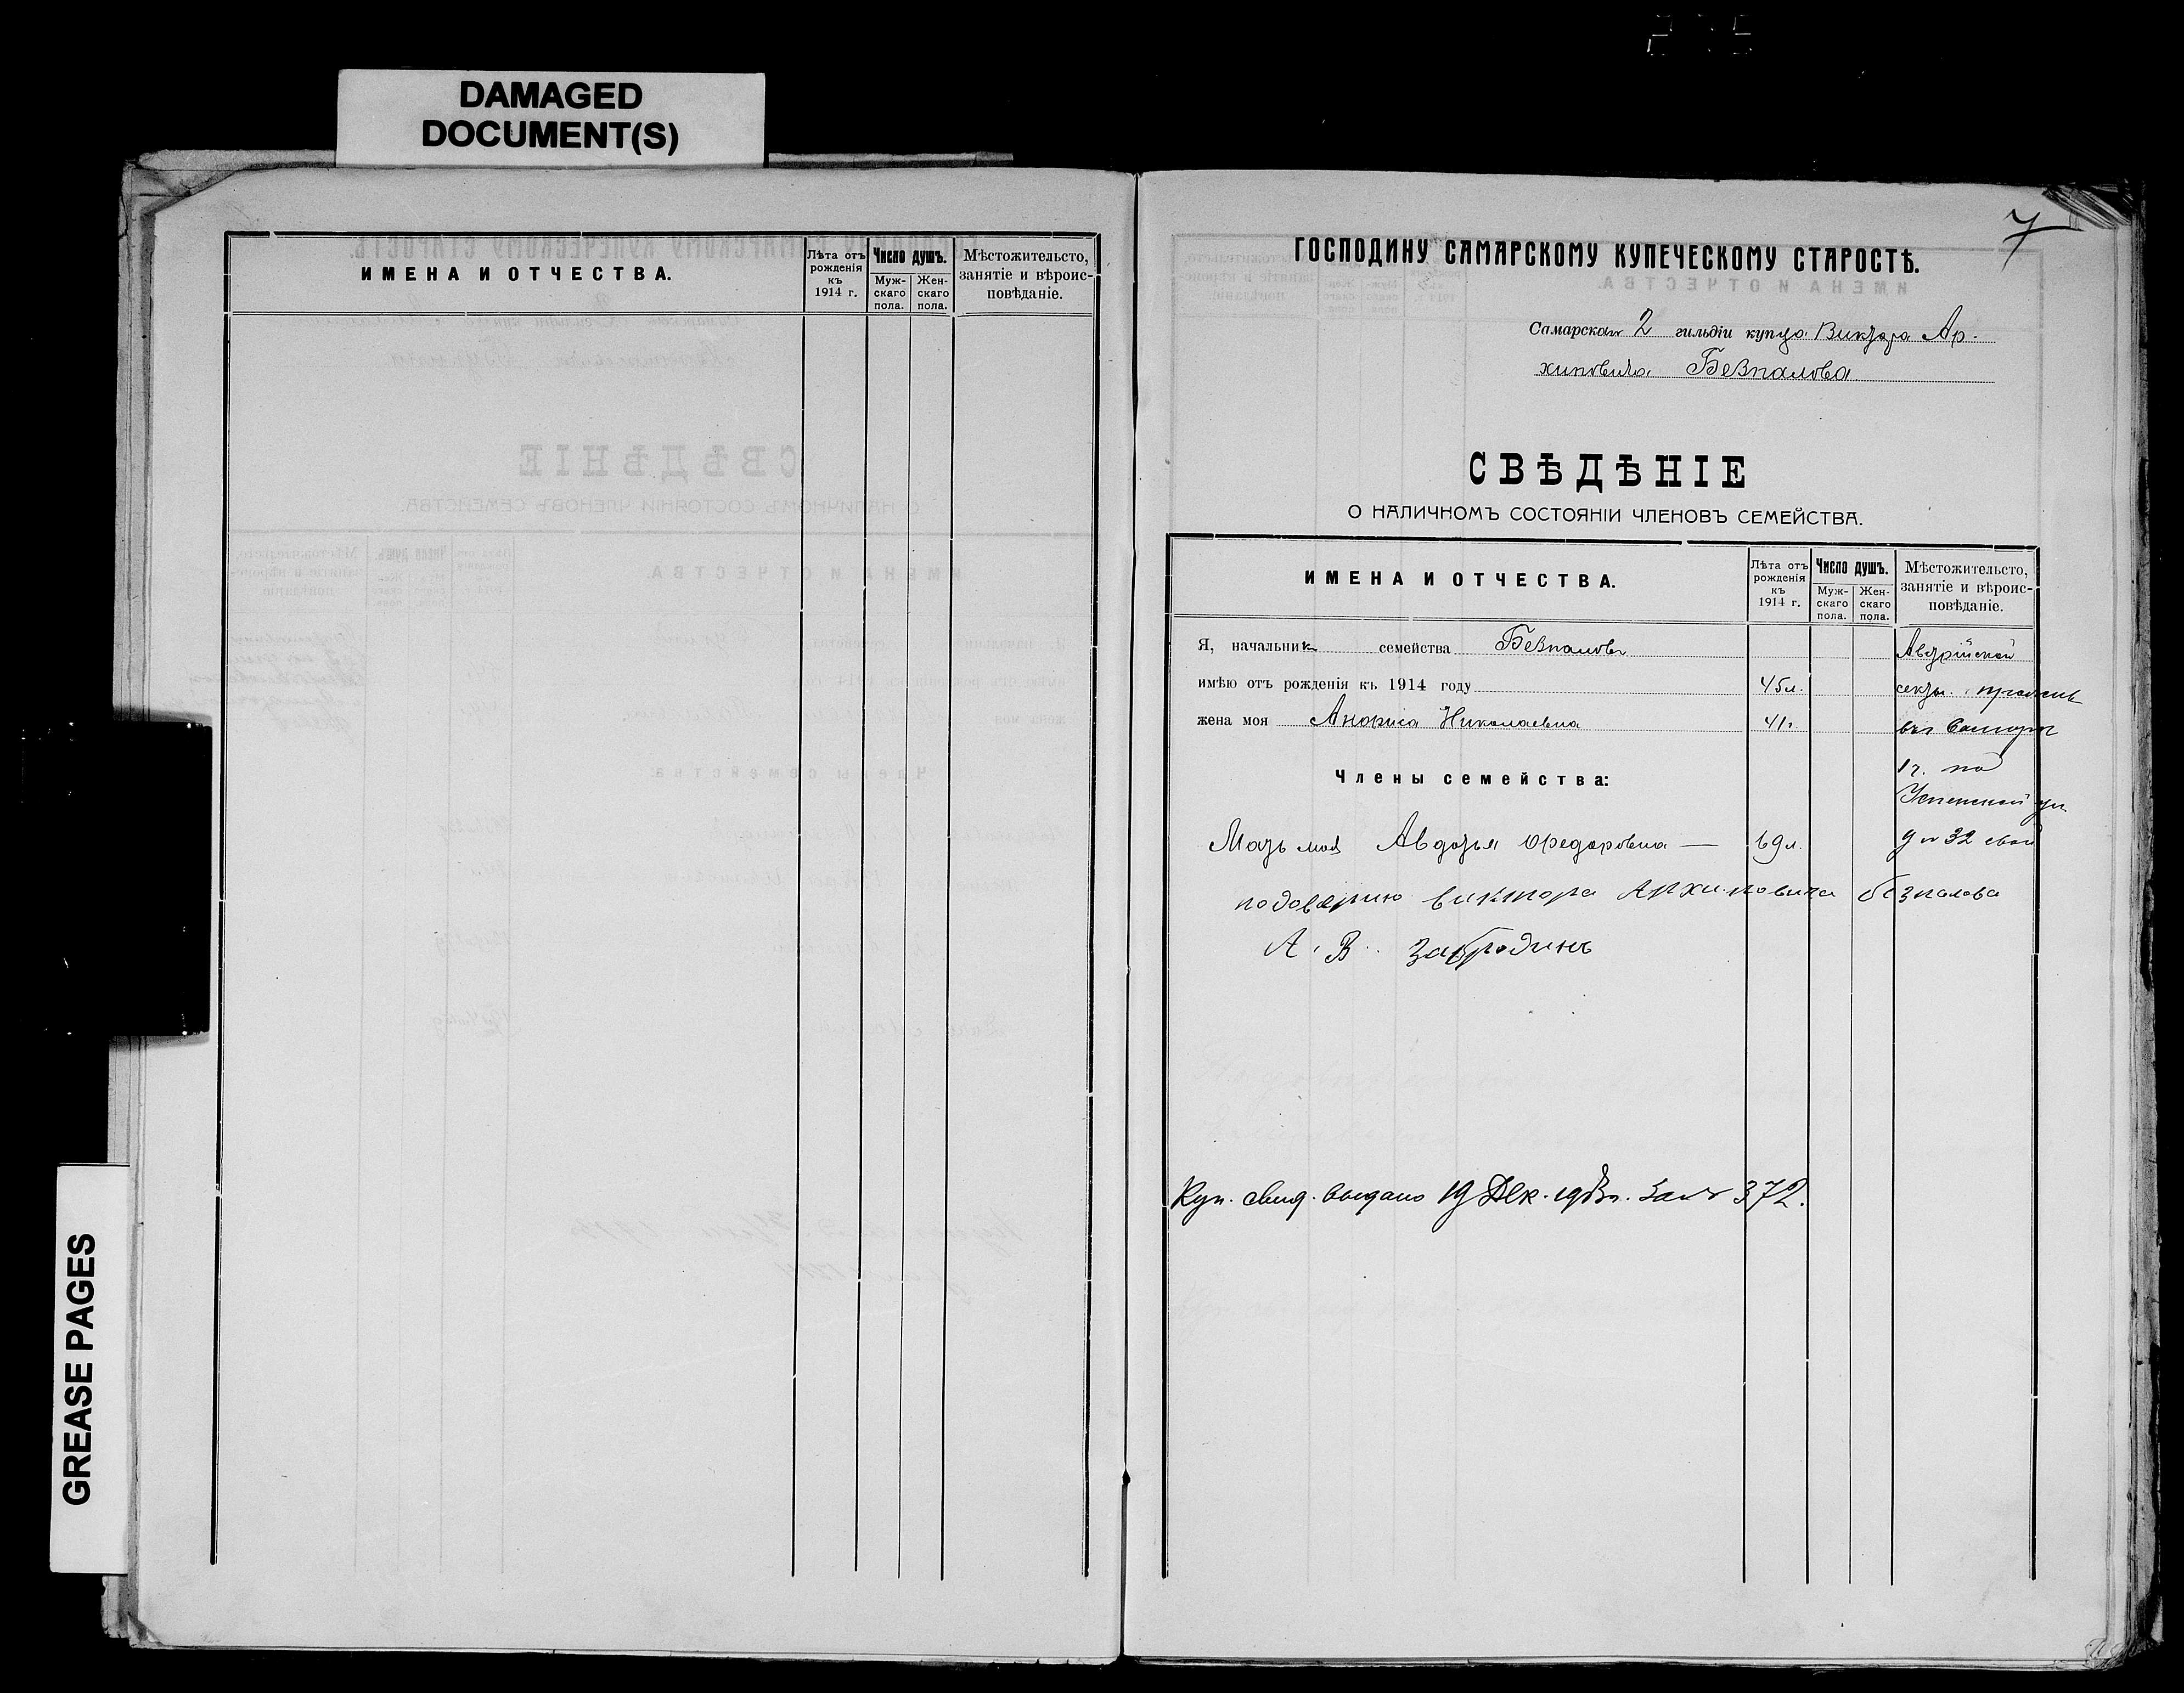 DAMAGED
DOCUMENT(S)
GREASE PAGES
ИМЕНА И ОТЧЕСТВА.
Лѣта отъ рожденія къ 1914 г.
Число душъ.
Мужскаго пола.
Женскаго пола.
Мѣстожительсто, занятіе и вѣроисповѣданіе.
7
ГОСПОДИНУ САМАРСКОМУ КУПЕЧЕСКОМУ СТАРОСТѢ.
Самарскаго 2 гильдіи купца Виктора Ар-
хиповича Безпалова
СВѢДѢНІЕ
О НАЛИЧНОМЪ СОСТОЯНІИ ЧЛЕНОВЪ СЕМЕЙСТВА.
ИМЕНА И ОТЧЕСТВА.
Лѣта отъ рожденія къ 1914 г.
Число душъ.
Мужскаго пола.
Женскаго пола.
Мѣстожительсто, занятіе и вѣроисповѣданіе.
Я, начальникъ семейства Безпаловъ Австрійской
имѣю отъ рожденія къ 1914 году 45 л. секты
жена моя Анфиса Николаевна 41 г. въ Самарѣ
1 ч. по
Члены семейства:
Успенской ул.
Мать моя Авдотья Федоровна — 69 л. д № 32 свой
подоверию виктора Архиповича безпалова
А. В. Забродинъ
Куп. свид. выдано 19 Дек. 1913 г. за № 372.